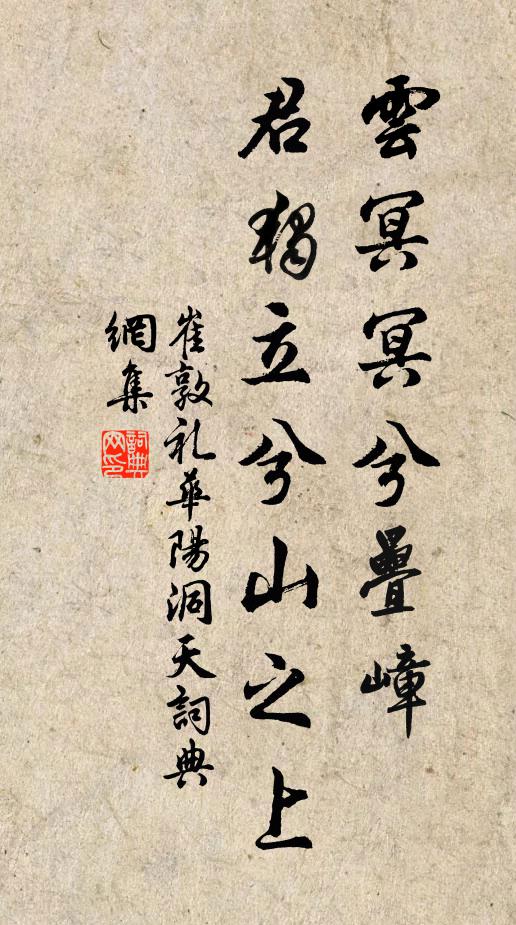 雲冥冥兮疊嶂
君獨立兮山之上
崔敦礼華陽洞天詞典
網集
詞典網印